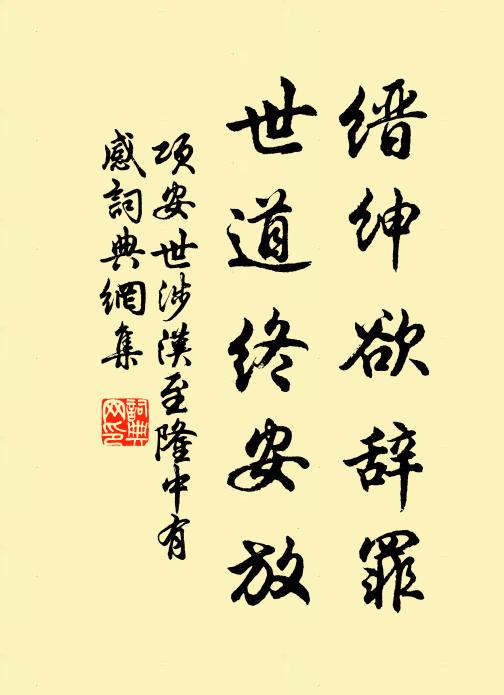 缙绅欲辞罪
世道终安放
项安世涉漢至隆中有
感詞典網集
詞典
网印